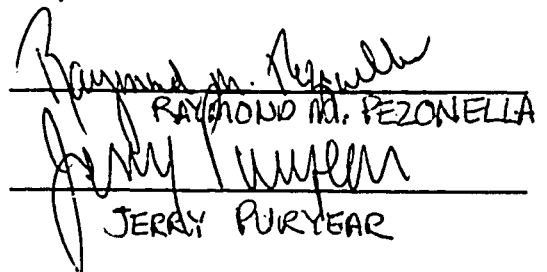 Raymond M. Pezonella
RAYMOND M. PEZONELLA
Jerry Puryear
JERRY PURYEAR